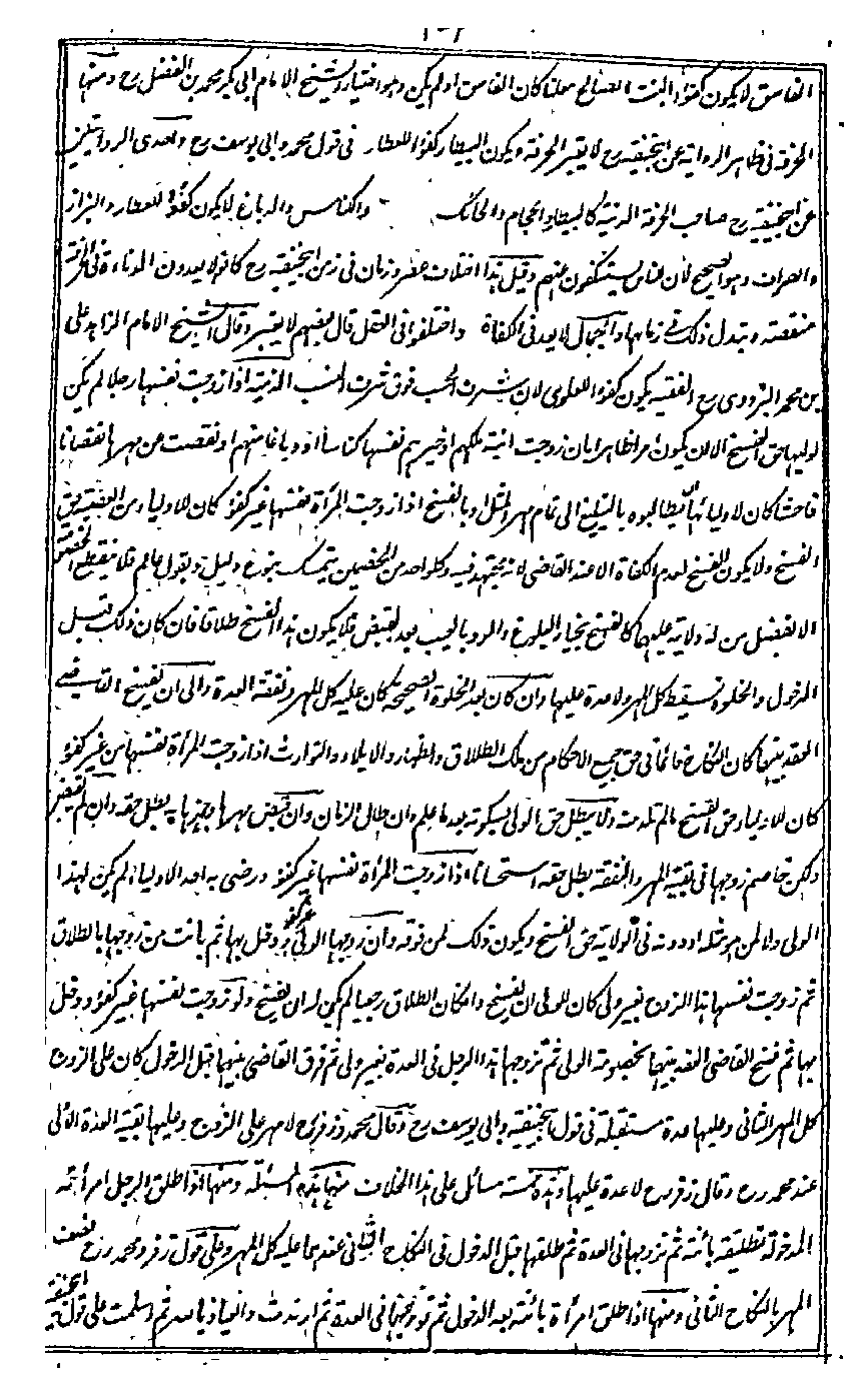 الفاسق لا يكون كفؤا لبنت الصالح معلنا كان الفاسق او لم يكن وهو اختيار الشيخ الامام ابي بكر محمد بن الفضل رح ومنها
الحرفة في ظاهر الرواية عن ابيحنيفة رح لا يعتبر الحرفة ويكون البيطار كفؤا للعطار في قول محمد وابي يوسف رح واحدى الروايتين
عن ابيحنيفة رح صاحب الحرفة الدنية كالبيطار والحجام والحائك والكناس والدباغ لا يكون كفؤا للعطار والبزاز
والصراف وهو الصحيح لان الناس يستنكفون عنهم وقيل هذا اختلاف عصر وزمان في زمن ابيحنيفة رح كانوا لا يعدون الدناءة في الحرفة
منقصة وتبدل ذلك في زمانهما والجمال لا يعد في الكفاة واختلفوا في العقل قال بعضهم لا يعتبر وقال الشيخ الامام الزاهد على
بن محمد البزدوي رح الفقيه يكون كفؤا للعلوي لان شرف الحسب فوق شرف النسب الدنية اذا زوجت نفسها رجلا لم يكن
لوليها حق الفسخ الا ان يكون امرا ظاهرا بان زوجت ابنة ملكهم او خيرهم نفسها كناسا او دباغا منهم او نقصت عن مهرها نقصانا
فاحشا كان لاوليائها ان يطالبوه بالتبليغ الى تمام مهر المثل او بالفسخ اذا زوجت المرأة نفسها غير كفؤ كان للاولياء من العصبة حق
الفسخ ولا يكون الفسخ لعدم الكفاة الا عند القاضي لانه مجتهد فيه وكل واحد من الخصمين يتمسك بنوع دليل وبقول عالم فلا ينقطع الخصومة
الا بفصل من له ولاية عليهما كالفسخ بخيار البلوغ والرد بالعيب بعد القبض فلا يكون هذا الفسخ طلاقا فان كان ذلك قبل
الدخول والخلوة يسقط كل المهر ولا عدة عليها وان كان بعد الخلوة الصحيحة كان عليه كل المهر ونفقة العدة والى ان يفسخ القاضي
العقد بينهما كان النكاح قائما في حق جميع الاحكام من ملك الطلاق والظهار والايلاء والتوارث اذا زوجت المرأة نفسها من غير كفؤ
كان للاولياء حق الفسخ ما لم تلد منه ولا يبطل حق الولي بسكوته بعد ما علم وان طال الزمان وان قبض مهرها وجهزها به بطل حقه وان لم يقبض
ولكن خاصم زوجها في بقية المهر والنفقة بطل حقه استحسانا اذا زوجت المرأة نفسها غير كفؤ ورضي به احد الاولياء لم يكن لهذا
الولي ولا لمن هو مثله او دونه في الولاية حق الفسخ ويكون ذلك لمن فوقه وان زوجها الولي غير كفؤ ودخل بها ثم بانت من زوجها بالطلاق
ثم زوجت نفسها هذا الزوج بغير ولي كان للولي ان يفسخ وان كان الطلاق رجعيا لم يكن له ان يفسخ ولو زوجت نفسها غير كفؤ ودخل
بها ثم فسخ القاضي العقد بينهما بخصومة الولي ثم تزوجها هذا الرجل في العدة بغير ولي ثم فرق القاضي بينهما قبل الدخول كان على الزوج
كل المهر الثاني وعليها عدة مستقبلة في قول ابيحنيفة وابي يوسف رح وقال محمد وزفر رح لا مهر على الزوج وعليها بقية العدة الاولى
عند محمد رح وقال زفر رح لا عدة عليها وهذه خمسة مسائل على هذا الخلاف منها هذه المسئلة ومنها اذا طلق الرجل امرأته
المدخولة تطليقة بائنة ثم تزوجها في العدة ثم طلقها قبل الدخول في النكاح الثاني عندهما عليه كل المهر وعلى قول زفر ومحمد رح نصف
المهر بالنكاح الثاني ومنها اذا طلق امرأة بائنة بعد الدخول ثم تزوجها في العدة ثم ارتدت والعياذ بالله ثم اسلمت على قول ابيحنيفة